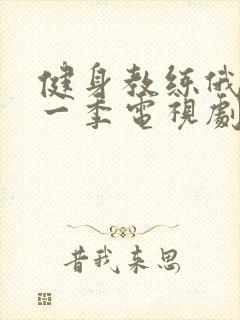 健身教练俄
一季電視劇
昔我来思